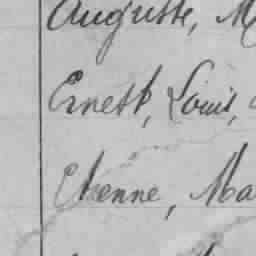 Auguste, M
Ernest, Louis,
Etienne, Ma